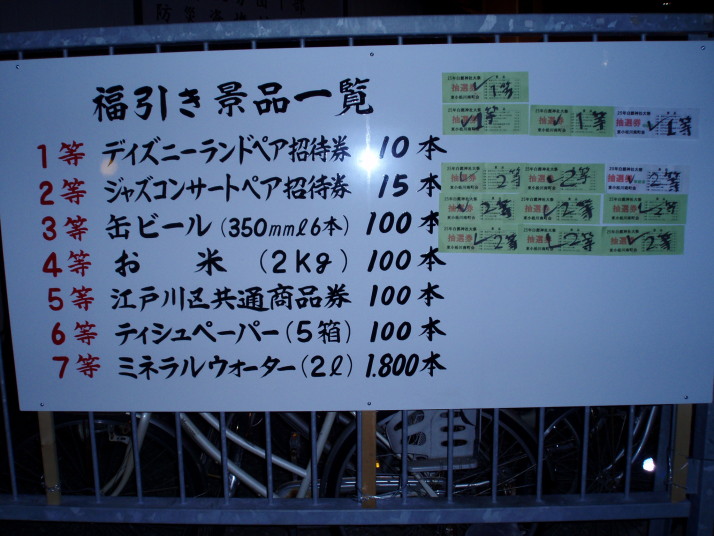 福引き景品一覧
1等 ディズニーランドペア招待券 10本
2等 ジャズコンサートペア招待券 15本
3等 缶ビール(350mmℓ6本) 100本
4等 お米(2kg) 100本
5等 江戸川区共通商品券 100本
6等 ティシュペーパー(5箱) 100本
7等 ミネラルウォーター(2ℓ) 1.800本
抽選券 1等
抽選券 1等
抽選券 1等
抽選券 1等
抽選券 2等
抽選券 2等
抽選券 2等
抽選券 2等
抽選券 2等
抽選券 2等
抽選券 2等
抽選券 2等
抽選券 2等